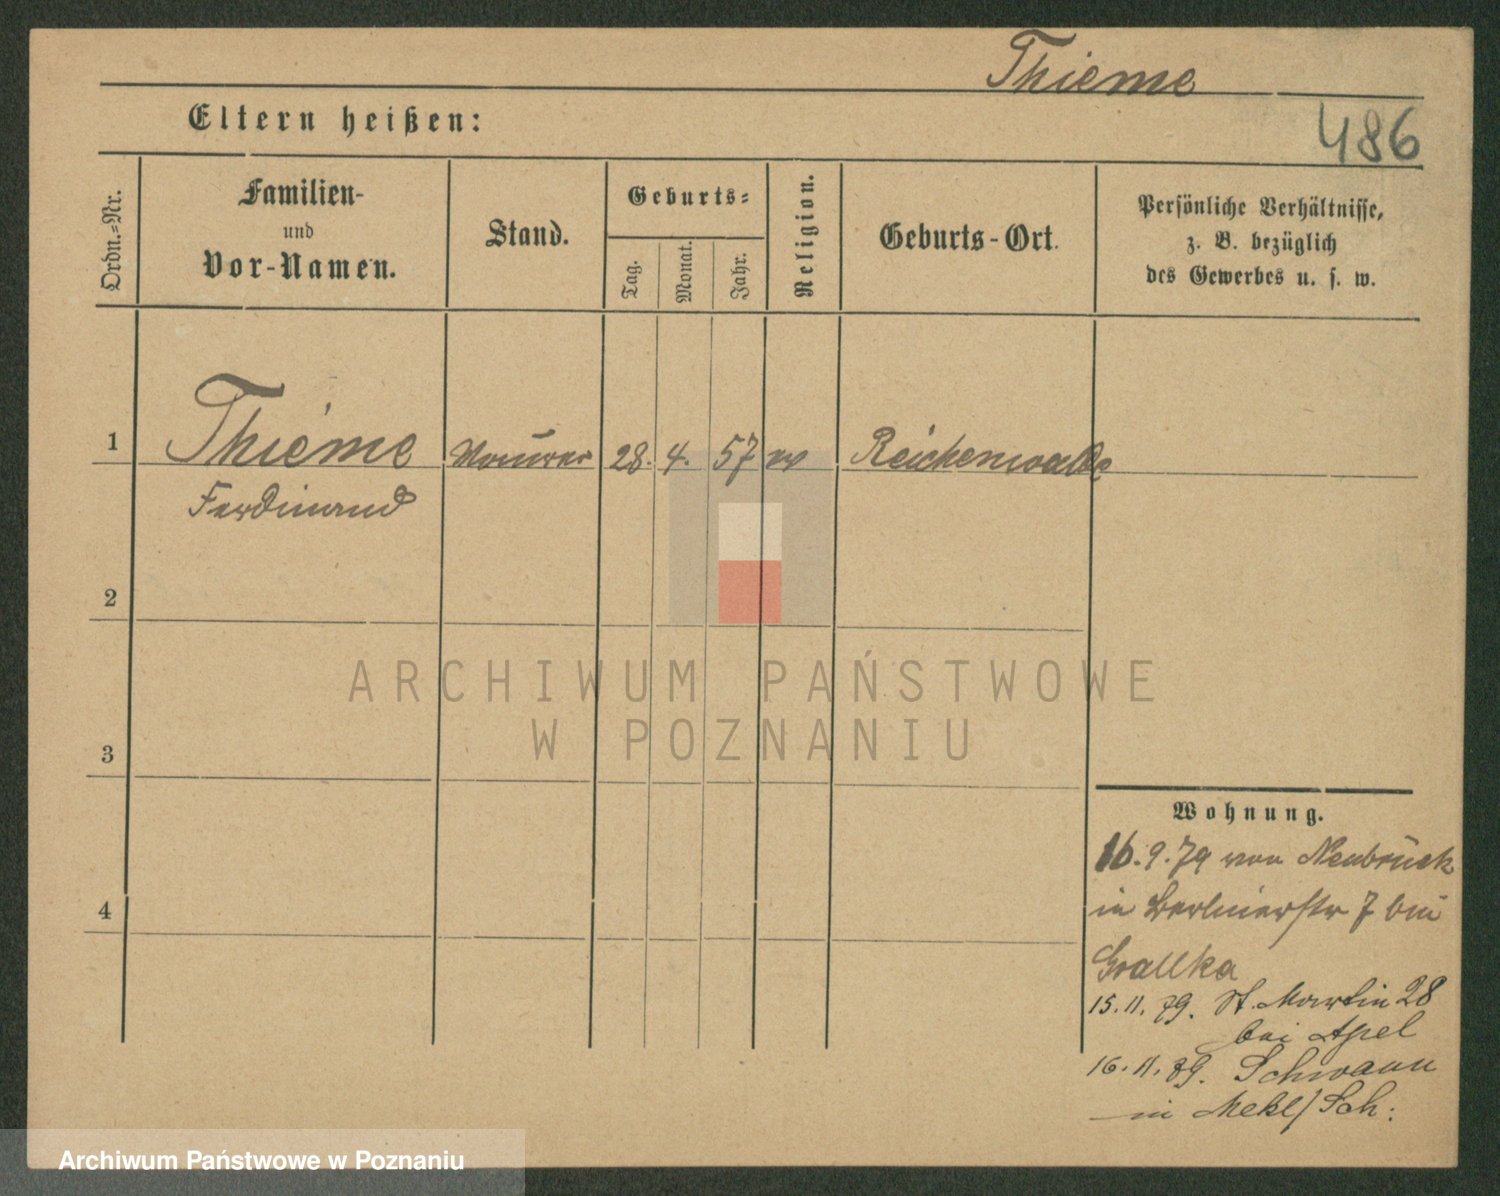 Thieme
486
Eltern heißen:
Ordn.-Nr.
Familien-
und
Vor-Namen.
Stand.
Geburts-
Tag.
Monat.
Jahr.
Religion.
Geburts-Ort.
Persönliche Verhältnisse,
z. B. bezüglich
des Gewerbes u. s. w.
1 Thieme Maurer 28. 4. 57 Reichenwalde
Ferdinand
2
ARCHIWUM PAŃSTWOWE
W POZNANIU
3
Wohnung.
16.9.79 von Neubrück
4
in Berlinerstr 7 bei
Grallka
15.11.79. St. Martin 28
bei Apel
16.11.89. Schwaan
in Mekl/Sch:
Archiwum Państwowe w Poznaniu